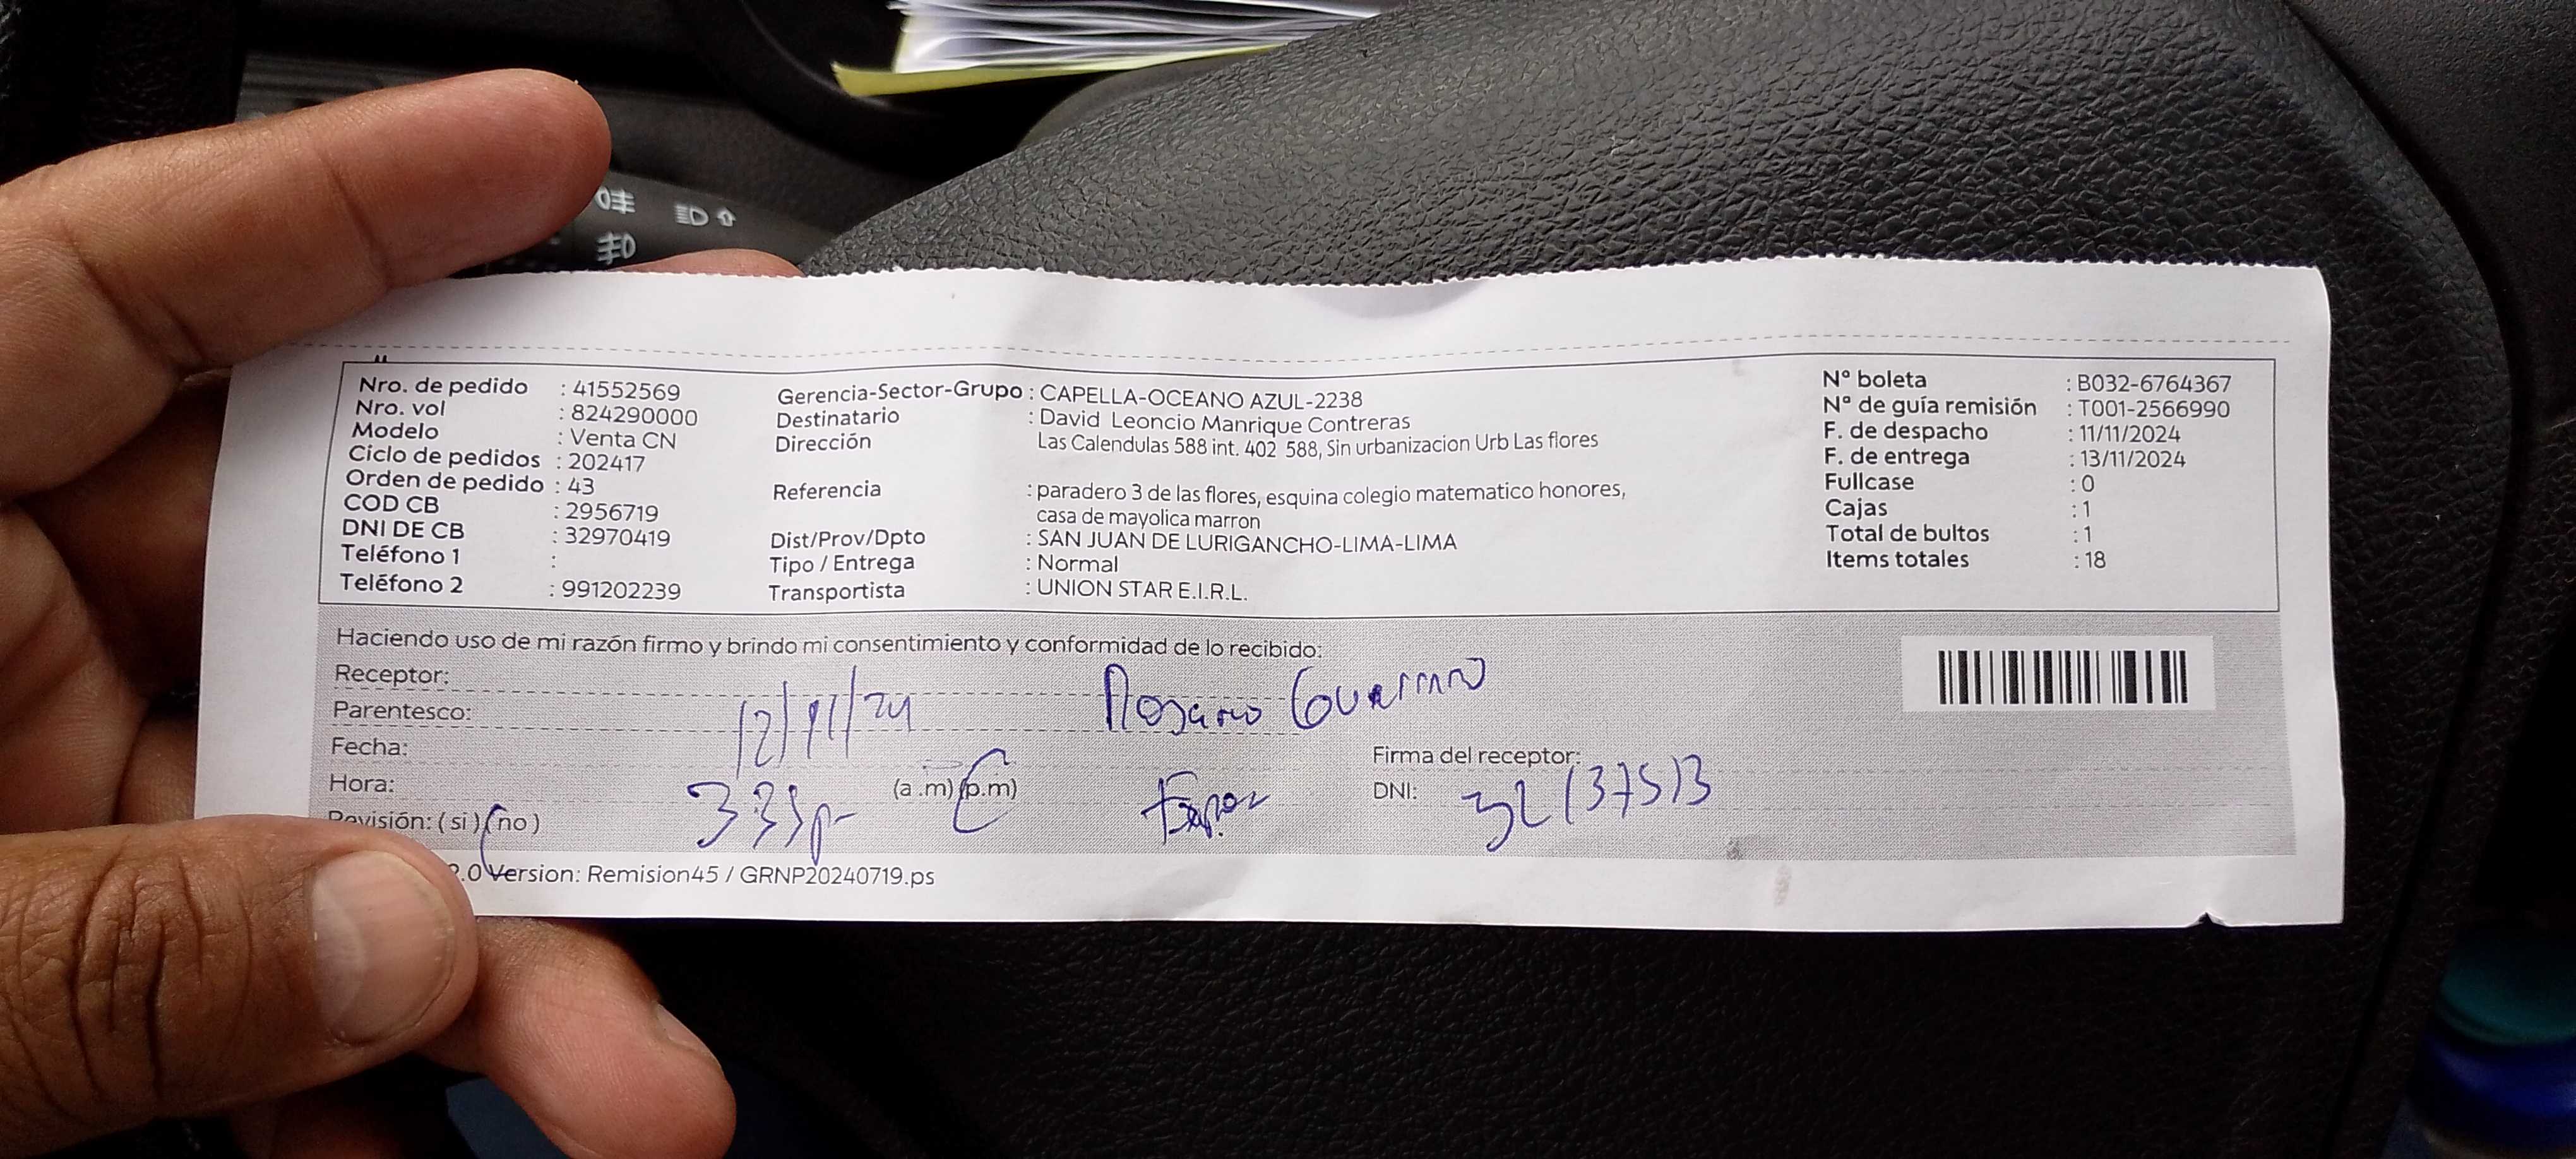 Nro. de pedido : 41552569
Nro. vol : 824290000
Modelo : Venta CN
Ciclo de pedidos : 202417
Orden de pedido : 43
COD CB : 2956719
DNI DE CB : 32970419
Teléfono 1 :
Teléfono 2 : 991202239
Gerencia-Sector-Grupo : CAPELLA-OCEANO AZUL-2238
Destinatario : David Leoncio Manrique Contreras
Dirección Las Calendulas 588 int. 402 588, Sin urbanizacion Urb Las flores
Referencia : paradero 3 de las flores, esquina colegio matematico honores,
casa de mayolica marron
Dist/Prov/Dpto : SAN JUAN DE LURIGANCHO-LIMA-LIMA
Tipo / Entrega : Normal
Transportista : UNION STAR E.I.R.L.
N° boleta : B032-6764367
N° de guía remisión : T001-2566990
F. de despacho : 11/11/2024
F. de entrega : 13/11/2024
Fullcase : 0
Cajas : 1
Total de bultos : 1
Items totales : 18
Haciendo uso de mi razón firmo y brindo mi consentimiento y conformidad de lo recibido:
Receptor:
Parentesco: 12/11/24 Rosario
Fecha:
Firma del receptor:
Hora: (a .m) (p.m)
DNI:
Revisión: ( si ) ( no )
2.0 Version: Remision45 / GRNP20240719.ps